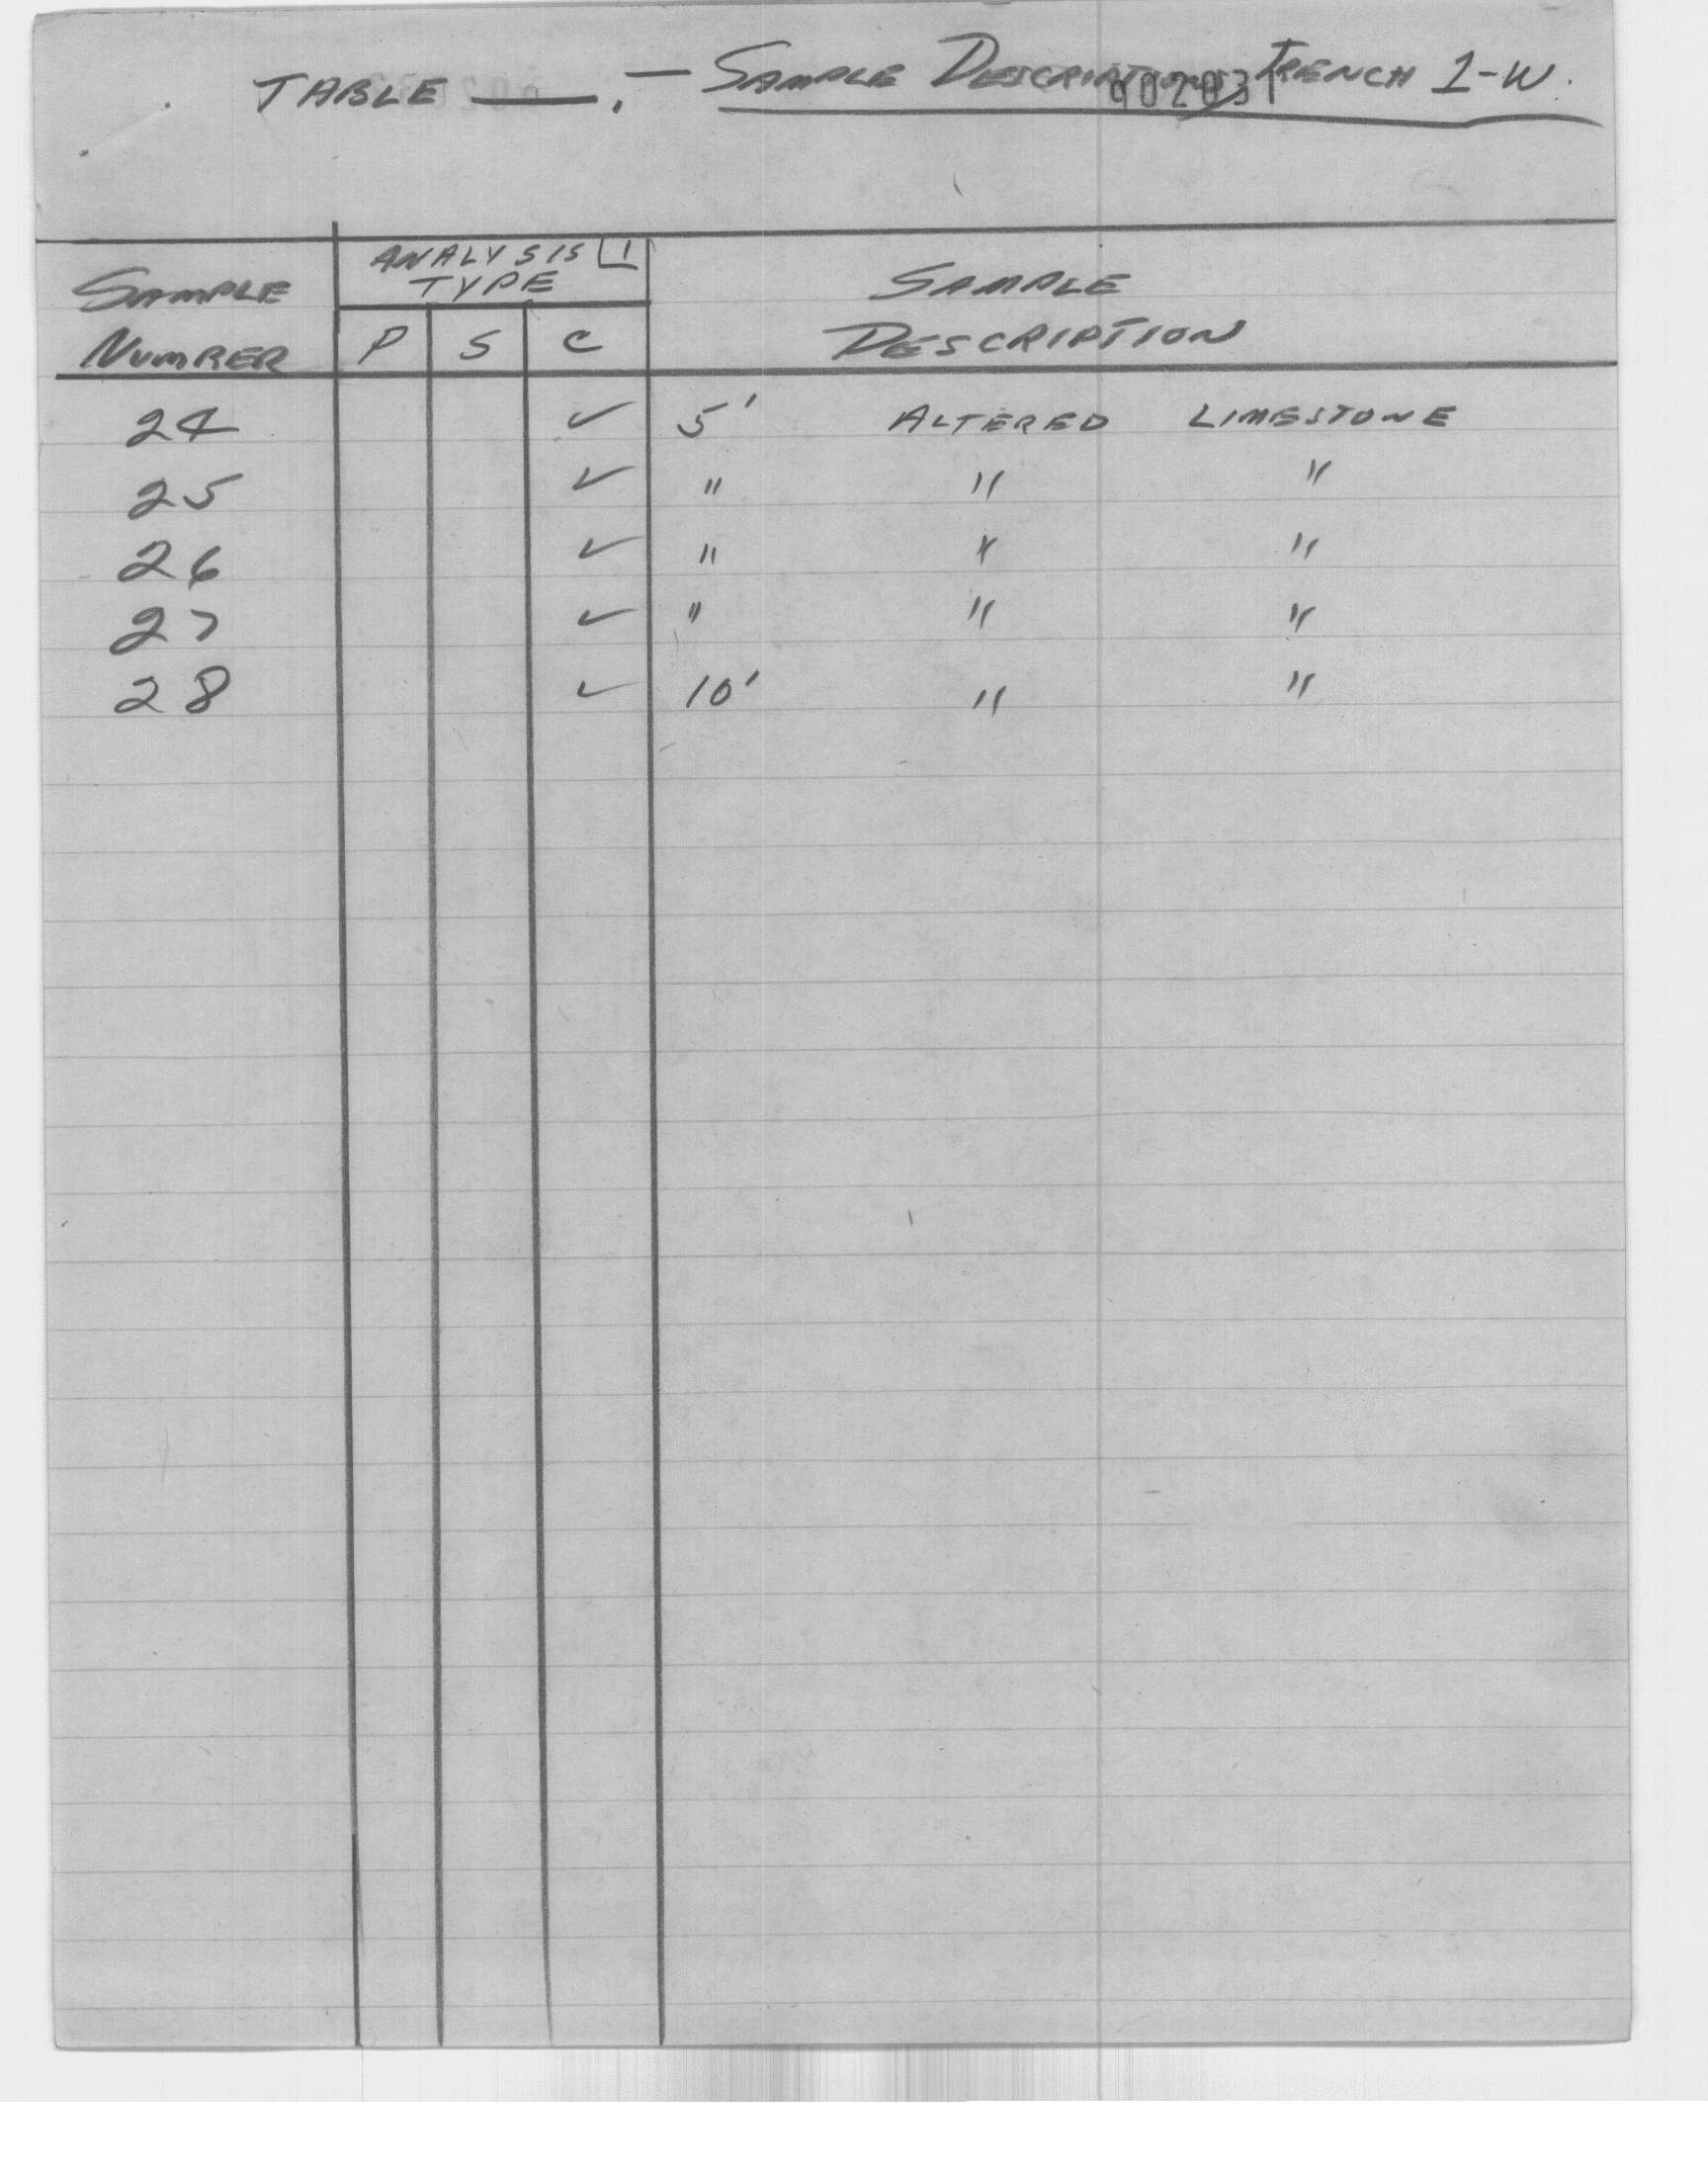 TABLE ___. — SAMPLE DESCRIPTIONS, TRENCH 1-W.
902031
SAMPLE NUMBER
ANALYSIS 1
TYPE
P S C
SAMPLE
DESCRIPTION
24 ✓ 5' ALTERED LIMESTONE
25 ✓ " " "
26 ✓ " " "
27 ✓ " " "
28 ✓ 10' " "